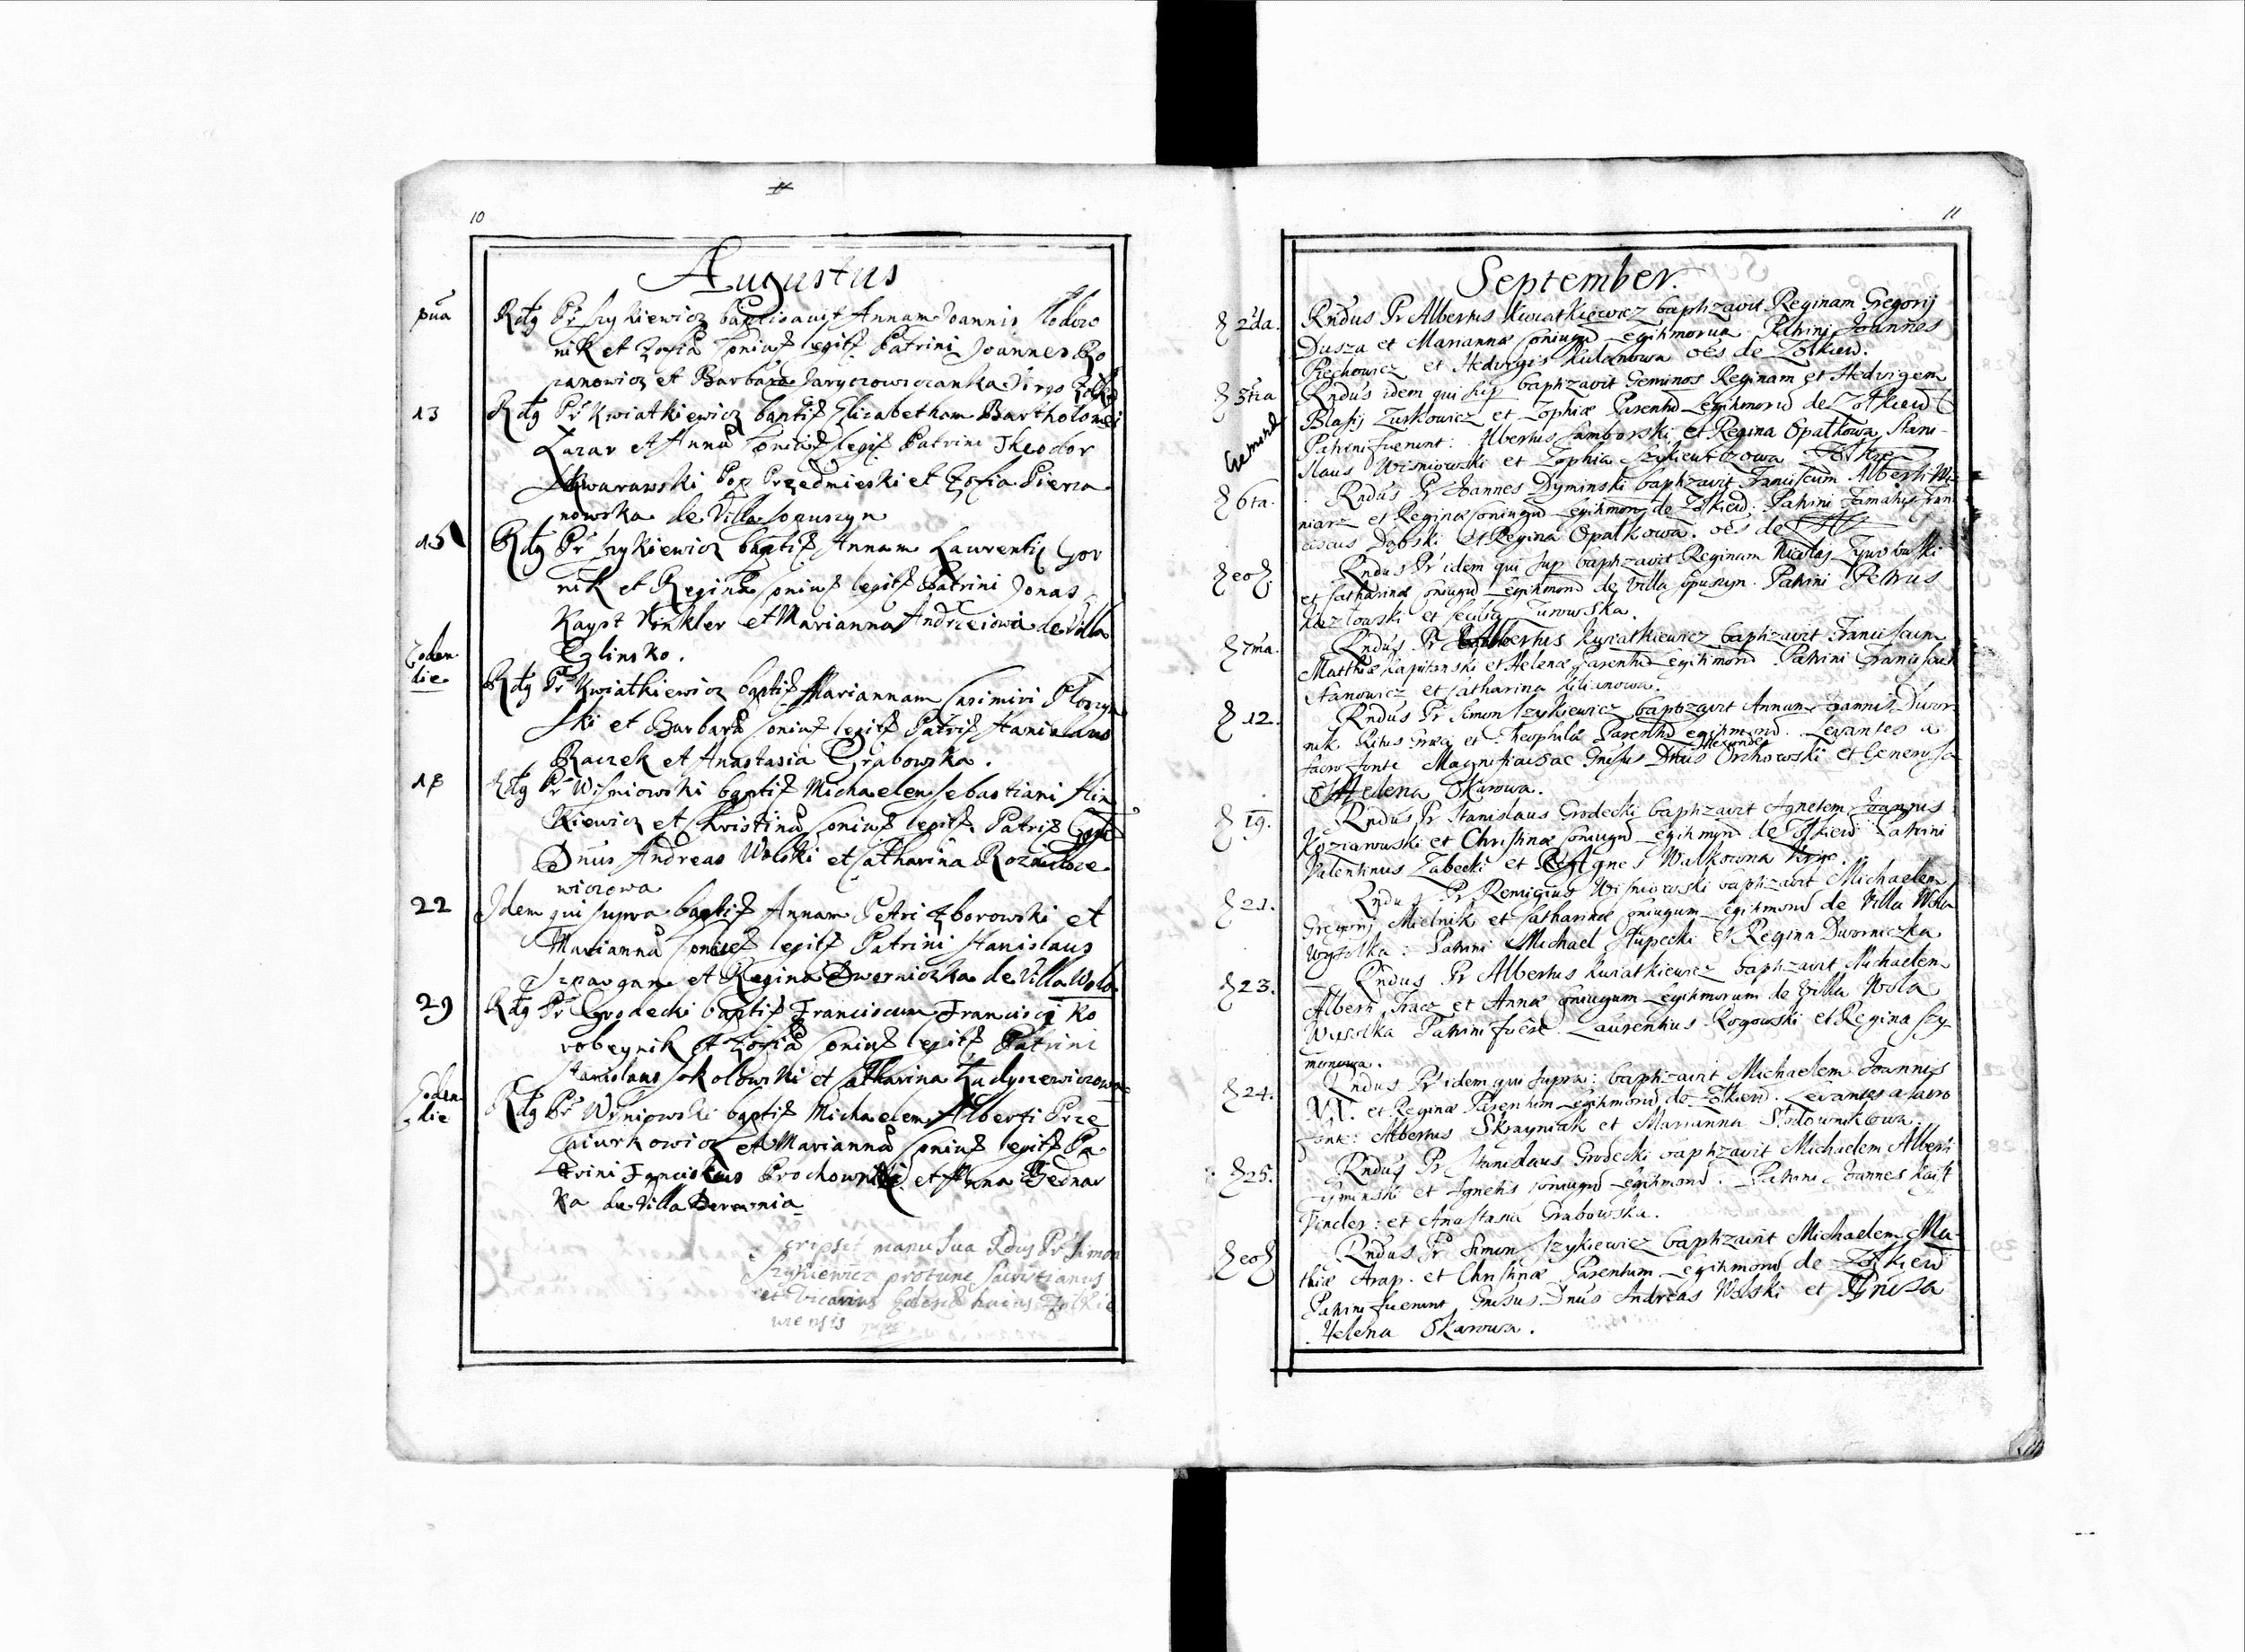 10
Augustus
pua
Rdg Pr Szykiewicz baptisavit Annam Joannis Slodow
nik et Zofia Coniug legit Patrini Joannes Ro
manowicz et Barbara Jaryczowiczanka Virgo
13
Rdg Pr Kwiatkiewicz baptis Elizabetham Bartholomei
Lazar et Anna Coniug legit Patrini Theodor
Skwarawski Pop Przedmieski et Zofia Pierza
nowska de Villa Sopuszyn
15
Rdg Pr Szykiewicz baptis Annam Laurentii Gor
nik et Regina Coniug legit Patrini Jonas
Kayst Winkler et Marianna Andrzeiowa de Villa
Glinsko.
Eodem
die
Rdg Pr Kwiatkiewicz baptis Mariannam Casimiri
ski et Barbara Coniug legit Patris Stanislaus
Raczek et Anastasia Grabowska.
18
Rdg Pr Wisniowski baptis Michaelem Sebastiani
kiewicz et Christina Coniug legit Patris
Dnus Andreas Wolski et Catharina
wiczowa
22
Idem qui supra baptis Annam Petri Zborowski et
Marianna Coniug legit Patrini Stanislaus
Szpargan et Regina Dworniczka de Villa Wola
29
Rdg Pr Grodecki baptis Franciscum Francisci Ko
robeynik et Zofia Coniug legit Patrini
Stanislaus Sokolowski et Catharina
Eodem
die
Rdg Pr Wisniowski baptis Michaelem Alberti Prze
et Marianna Coniug legit Pa
trini Franciskus et Anna Bednar
ka de Villa Derewnia
Scripsit manu sua Rdus Pr Simon
Szykiewicz protunc Sacristianus
et Vicarius huius Zolkie
wiensis
11
September.
2da.
Rndus Pr Albertus Kwiatkiewicz baptizavit Reginam Gregorij
Dusza et Mariannæ Coniugu Legitimorum. Patrini Joannes
Piechowicz et Hedvigis Kulanowa oes de Zolkiew.
3tia
Rndus idem qui sup baptizavit Geminos Reginam et Hedvigem
Blasij Zurkowicz et Zophiæ Parentu Legitimoru de Zolkiew
Patrini fuerunt: Albertus Samborski et Regina Opalkowa, Stani-
slaus Wisniowski et Zophia Szykiewiczowa
6ta.
Rndus Pr Joannes Dyminski baptizavit Franciscum Alberti
niarz et Reginæ Coniugu Legitimor de Zolkiew. Patrini Fran
ciscus Dąbski et Regina Opalkowa. oes de
eod
Rndus Pr idem qui sup baptizavit Reginam Nicolaj
et Catharinæ Coniugu Legitimoru de Villa Sopuszyn. Patrini Petrus
Kozlowski et Turowska.
7ma.
Rndus Pr Albertus Kwiatkiewicz baptizavit Franciscum
Matthiæ Kapitanski et Helenæ Parentu Legitimoru. Patrini Franciscus
Stanowicz et Catharina Kilianowa.
12.
Rndus Pr Simon Szykiewicz baptizavit Annam Joannis Dwor
nik Ritus Græci et Theophilæ Parentu Legitimoru. Levantes a
Alexander
Sacro fonte Magnificus ac Gnsus Dnus Orchowski et Generosa
Helena Skarowa.
19.
Rndus Pr Stanislaus Grodecki baptizavit Agnetem Joannis
Kozianowski et Christinæ Coniugu Legitimoru de Zolkiew Patrini
Valentinus Zabecki et Agnes Walkowna Virgo.
21.
Rndus Pr Remigius Wisniowski baptizavit Michaelem
Gregorij Mielnik et Catharinæ Coniugum Legitimoru de Villa Wola
Wysolka: Patrini Michael Slupecki et Regina Dworniczka
23.
Rndus Pr Albertus Kwiatkiewicz baptizavit Michaelem
Alberti Tracz et Annæ Coniugum Legitimorum de Villa Wola
Wysolka Patrini fuere. Laurentius Rogowski et Regina Szy
monowa.
24.
Rndus Pr idem qui supra: baptizavit Michaelem Joannis
N.N. et Reginæ Parentum Legitimoru de Zolkiew. Levantes a Sacro
fonte: Albertus Skrzyniak et Marianna Stodownikowa.
25.
Rndus Pr Stanislaus Grodecki baptizavit Michaelem Alberti
Zyminski et Agnetis Coniugu Legitimoru. Patrini Joannes Kaist
Vincler: et Anastasia Grabowska.
eod
Rndus Pr Simon Szykiewicz baptizavit Michaelem Ma-
thiæ Arap. et Christinæ Parentum Legitimoru de Zolkiew
Patrini fuerunt Gnsus Dnus Andreas Wolski et Gnosa
Helena Skarowa.